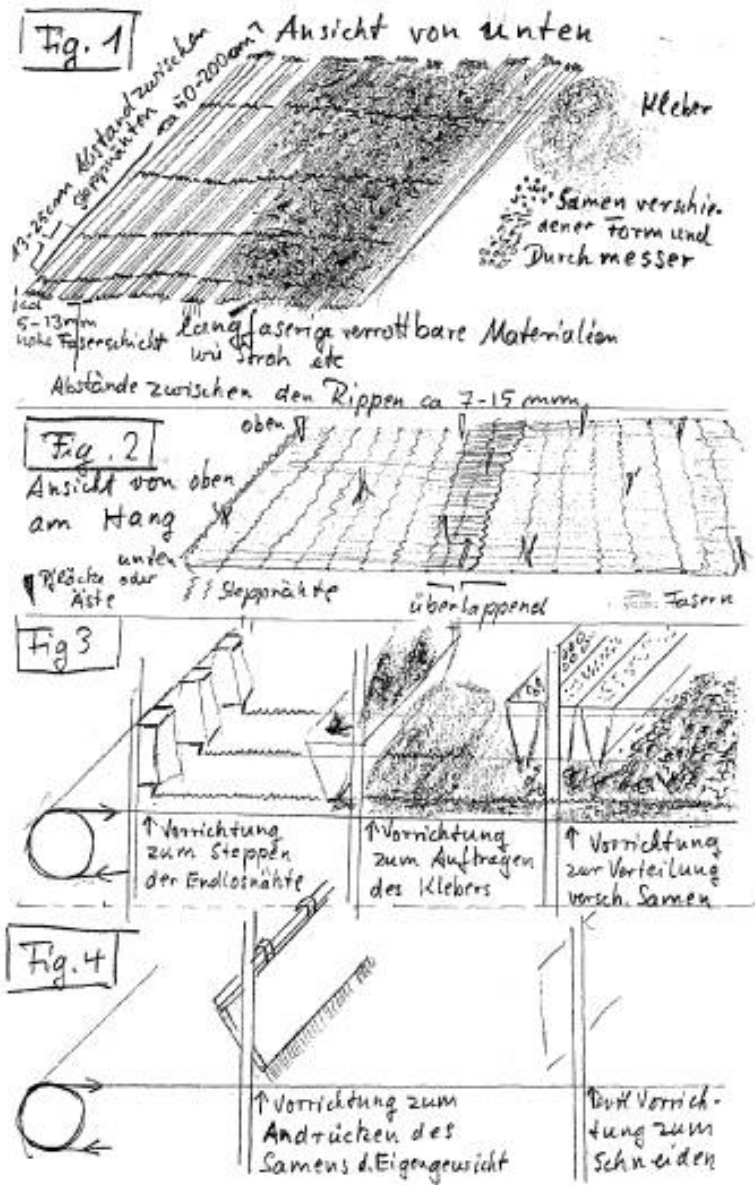 Fig. 1
Ansicht von unten
13-25cm Abstand zwischen
Steppnähten
ca 40-200cm?
Kleber
Samen verschie-
dener Form und
Durchmesser
ca
5-13mm
hohe Faserschicht
langfaserige verrottbare Materialien
wie Stroh etc
Abstände zwischen den Rippen ca 7-15 mm
Fig. 2
oben
Ansicht von oben
am Hang
unten
Pflöcke oder
Äste
Steppnähte
überlappend
Fasern
Fig 3
↑ Vorrichtung
zum Steppen
der Endlosnähte
↑ Vorrichtung
zum Auftragen
des Klebers
↑ Vorrichtung
zur Verteilung
versch. Samen
Fig. 4
↑ Vorrichtung zum
Andrücken des
Samens d. Eigengewicht
↑ Vorrich-
tung zum
Schneiden